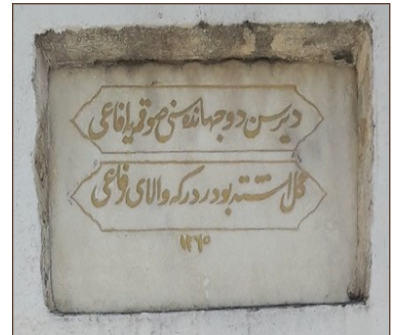 ديرسن دو جهانده سنی صوقميه افاعی
كل اشته بودر دركه والای رفاعی
١٢٦٥